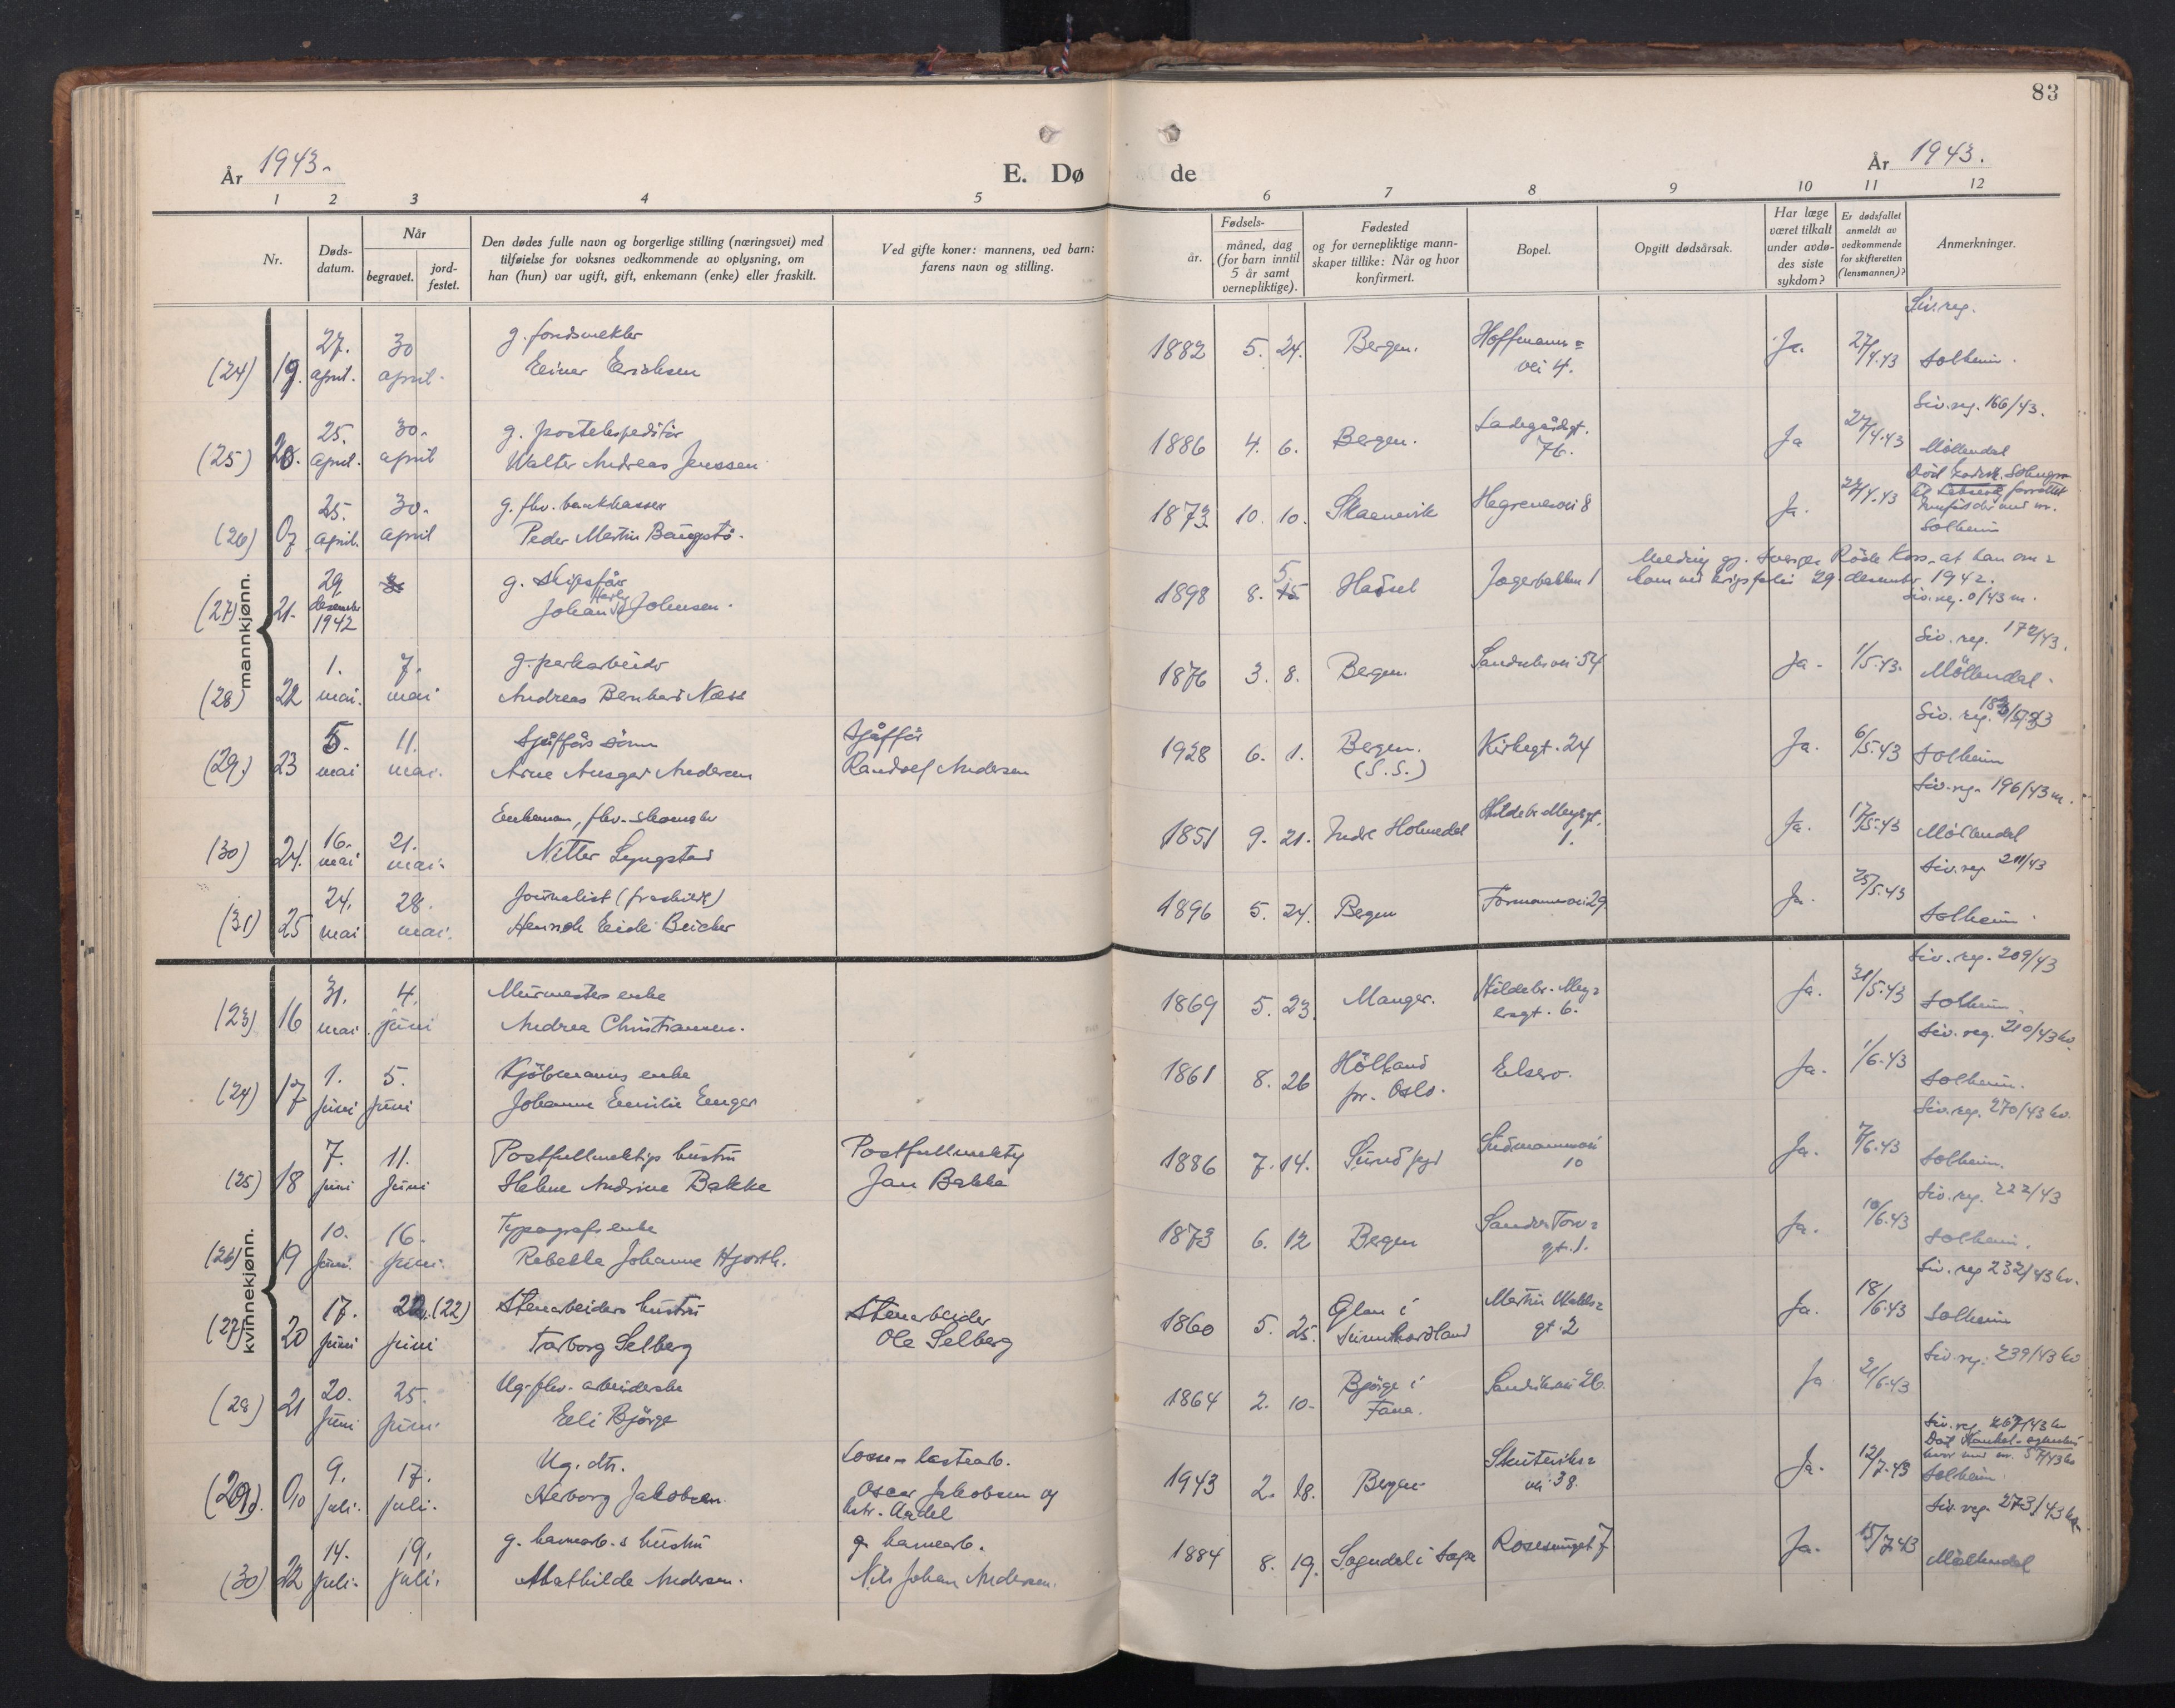 83
År 1943.
E. Døde
År 1943.
1 2 3 4 5 6 7 8 9 10 11 12
Nr.
Døds-
datum.
Når
begravet.
jord-
festet.
Den dødes fulle navn og borgerlige stilling (næringsvei) med
tilføielse for voksnes vedkommende av oplysning, om
han (hun) var ugift, gift, enkemann (enke) eller fraskilt.
Ved gifte koner: mannens, ved barn:
farens navn og stilling.
Fødsels-
år.
måned, dag
(for barn inntil
5 år samt
vernepliktige).
Fødested
og for vernepliktige mann-
skaper tillike: Når og hvor
konfirmert.
Bopel.
Opgitt dødsårsak.
Har læge
været tilkalt
under avdø-
des siste
sykdom?
Er dødsfallet
anmeldt av
vedkommende
for skifteretten
(lensmannen)?
Anmerkninger.
mannkjønn.
27. 30 g. fondsmekler
(24) 19. april. april. Einar Erichsen
1882 5. 24. Bergen. Hoffmanns=
vei 4.
Ja. 27/4.43 Solheim.
Siv. reg. 166/43.
25. 30. g. postekspeditør
(25) 20. april. april Walter Andreas Jenssen
1886 4. 6. Bergen. Ladegårdsgt.
76.
Ja 27/4.43 Möllendal
25. 30. g. fhv. bankkasser
(26) 07 april. april Peder Martin Baugstö.
1873 10. 10. Skaanevik Hegreneveien 8 Ja. 27/4.43
Solheim
29. g. skipsför
(27) 21. desember Johan Johnsen.
1942
1898 8. 5 15 Hadsel Jægerbakken 1
29. desember 1942.
Siv. reg. 0/43 m.
1. 7. g. parkarbeider
(28) 22 mai. mai Andreas Bernhard Næss
1876 3. 8. Bergen. Sandviksvei 54 Ja. 1/5.43. Möllendal.
Siv. reg. 172/43.
5. 11. Sjåförs sönn Sjåfför
(29.) 23 mai mai. Arne Ansgar Andersen Randolf Andersen
1928 6. 1. Bergen. Kirkegt. 24 Ja. 6/5.43 Solheim
(S.S.)
Siv. reg. 196/43 m.
Enkeman, fhv. skomaker
(30) 24. 16. 21.
mai mai. Nitter Lyngstad
1851 9. 21. Indre Holmedal 1. Ja. 17/5.43 Möllendal
Siv. reg. 211/43
24. 28. Journalist (fraskilt)
(31) 25 mai mai. Henrik Eide Beicher
1896 5. 24. Bergen Formannsvei 29. Ja. 25/5.43 Solheim.
kvinnekjønn.
Siv. reg. 209/43
31. 4. Murmesters enke
(23) 16 mai. juni Andrea Christiansen.
1869 5. 23. Manger. Hildebr. Mey=
ersgt. 6.
Ja. 31/5.43 Solheim.
Siv. reg. 210/43 kv.
1. 5. Kjöbmanns enke
(24) 17 juni juni Johanne Emilie Enger
1861 8. 26 Hölland
pr. Oslo.
Elsero. Ja. 1/6.43 Solheim.
Siv. reg. 270/43 kv.
7. 11. Postfullmektigs hustru Postfullmektig
(25) 18 juni Juni Helene Andrine Bakke Jan Bakke
1886 7. 14. Sundfjord 10 Ja. 7/6.43 Solheim.
Siv. reg. 222/43
10. 16. Typografs enke
(26) 19 juni. juni. Rebekka Johanne Hjorth.
1873 6. 12 Bergen
gt. 1.
Ja. 10/6.43 Solheim.
Siv. reg. 232/43 kv.
17. 22. (22) Stenarbeiders hustru Stenarbeider
(27) 20 juni juni Torborg Selberg Ole Selberg
1860 5. 25. Ølen i
Sunnhordland
gt. 2
Ja. 18/6.43 Solheim
Siv. reg. 239/43 kv
20. 25. Ug. fhv. arbeiderske
(28) 21 juni juni. Eli Björge
1864 2. 10. Bjørge i
Fana.
Sandviksvei 26. Ja 21/6.43
Siv. reg. 267/43 kv
9. 17. Ug. dtr. Losse- lastearb.
(29). 010 juli. juli. Herborg Jakobsen Oscar Jakobsen og
hstr. Aadel
1943 2. 18. Bergen Skuteviks=
vei 38.
Ja. 12/7.43 Solheim.
Siv. reg. 273/43 kv.
14. 19. g. havnearb.s hustru g. havnearb.
(30) 22 juli. juli. Mathilde Andersen. Nils Johan Andersen.
1884 8. 19. Sogndal i Sogn 7 Ja. 15/7.43 Möllendal